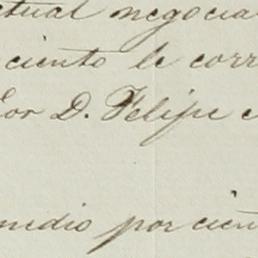 ctual negocia
ciento le corr
or D. Felipe
medio por cien